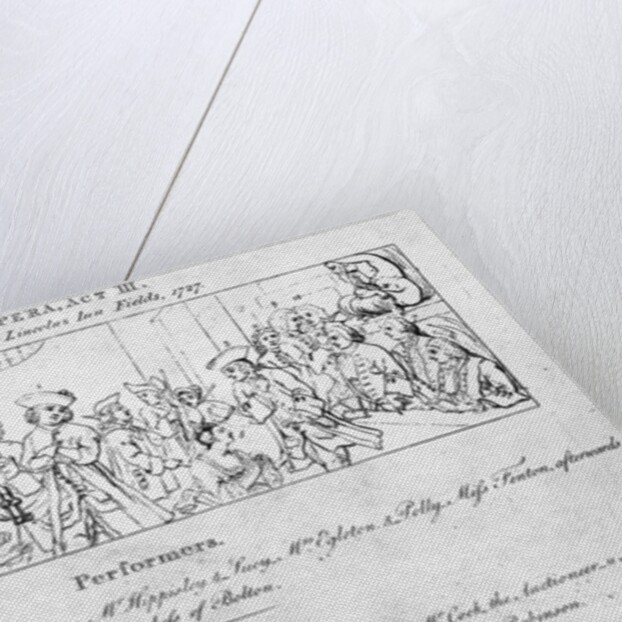 ERA, ACT III.
Lincolns Inn Fields, 1727.
Performers.
Mr Hippisley & Lucy, Mrs Egleton. & Polly, Miss Fenton, afterwards
of Bolton.
Mr Cock, the Auctioneer
Robinson.